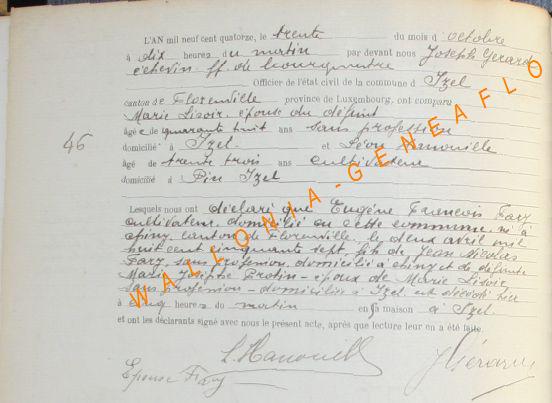 L'AN mil neuf cent quatorze, le trente du mois d'octobre
à dix heures du matin par devant nous Joseph Gerard
échevin ff. de bourgmestre
Officier de l'état civil de la commune d'Izel
canton de Florenville province de Luxembourg, ont comparu
Marie Lisoir, épouse du défunt
âgée de quarante huit ans sans profession
domicilié à Izel et Léon Hanouille
46
âgé de trente trois ans cultivateur
domicilié à Pin Izel
Lesquels nous ont déclaré que Eugène François Fary
cultivateur, domicilié en cette commune, né à
Chiny, canton de Florenville, le deux avril mil
huit cent cinquante sept, fils de Jean Nicolas
Fary, sans profession, domicilié à Chiny et de défunte
Marie Josephe - époux de Marie Lisoir,
sans profession - domiciliée à Izel est décédé
à cinq heures du matin en sa maison à Izel
et ont les déclarants signé avec nous le présent acte, après que lecture leur en a été faite.
L. Hanouille
J Gérard
Epouse Fary
WALLONIA-GENEAFLO